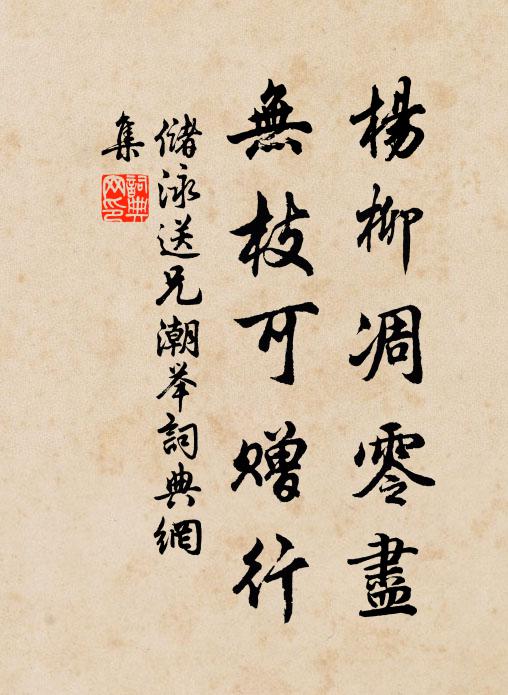 楊柳凋零盡
無枝可贈行
儲泳送兄潮举詞典網
集
詞典
网印